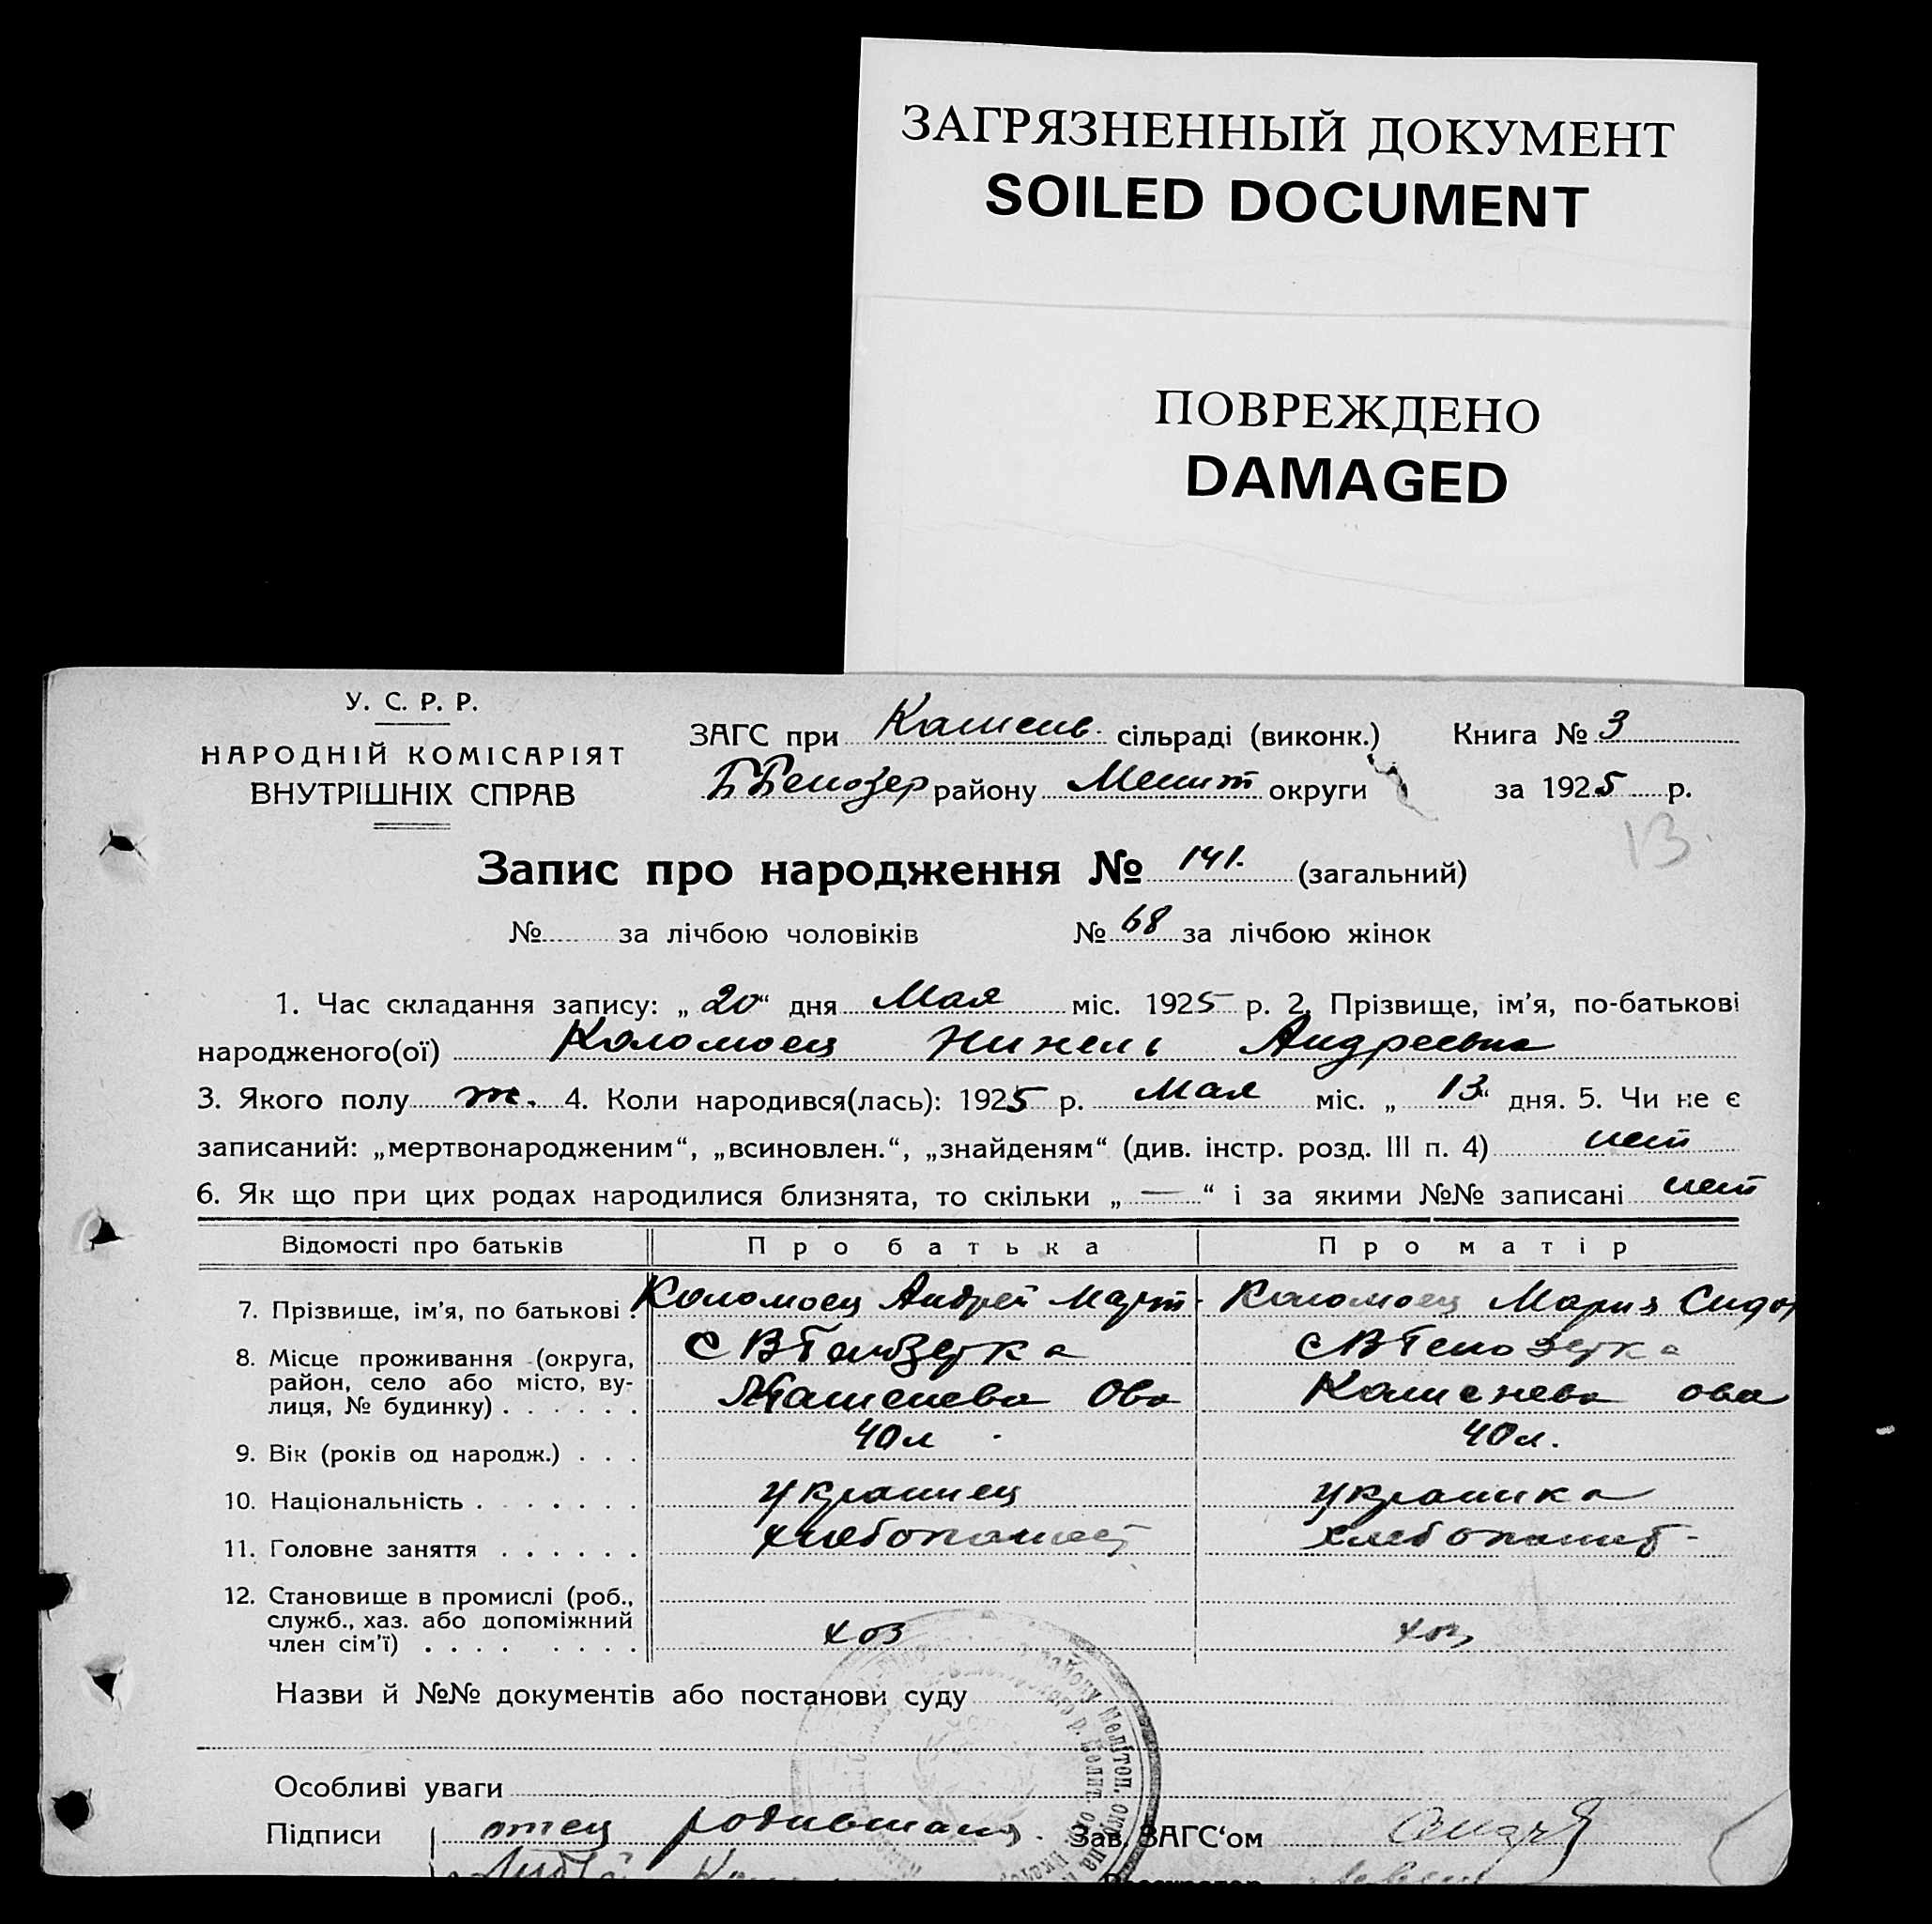 ЗАГРЯЗНЕННЫЙ ДОКУМЕНТ
SOILED DOCUMENT
ПОВРЕЖДЕНО
DAMAGED
У. С. Р. Р.
НАРОДНІЙ КОМІСАРІЯТ
ВНУТРІШНІХ СПРАВ
ЗАГС при Каменс. сільраді (виконк.) Книга № 3
Ббелозер району Мелит округи за 1925 р.
13.
Запис про народження № 141. (загальний)
№ за лічбою чоловіків № 68 за лічбою жінок
1. Час складання запису: „20“ дня Мая міс. 1925 р. 2. Прізвище, ім’я, по-батькові
народженого(ої) Коломоец Нинель Андреевна
3. Якого полу ж. 4. Коли народився(лась): 1925 р. Мая міс. „13“ дня. 5. Чи не є
записаний: „мертвонародженим“, „всиновлен.“, „знайденям“ (див. інстр. розд. III п. 4) нет
6. Як що при цих родах народилися близнята, то скільки „—“ і за якими №№ записані нет
Відомості про батьків Про батька Про матір
7. Прізвище, ім’я, по батькові . Коломоец Андрей Март Коломоец Мария Сидор
8. Місце проживання (округа, с ВБелозерка с ВБелозерка
район, село або місто, ву-
лиця, № будинку) . . . . . . Каменева Ова Каменева ова
9. Вік (років од народж.) . . . 40 л 40 л.
10. Національність . . . . . . . украинец украинка
11. Головне заняття . . . . . . хлебопашец хлебопашеб-
12. Становище в промислі (роб.,
служб., хаз. або допоміжний
член сім’ї) . . . . . . . . хоз хоз
Назви й №№ документів або постанови суду
Особливі уваги
Підписи отец родившаяся. Зав. ЗАГС‘ом